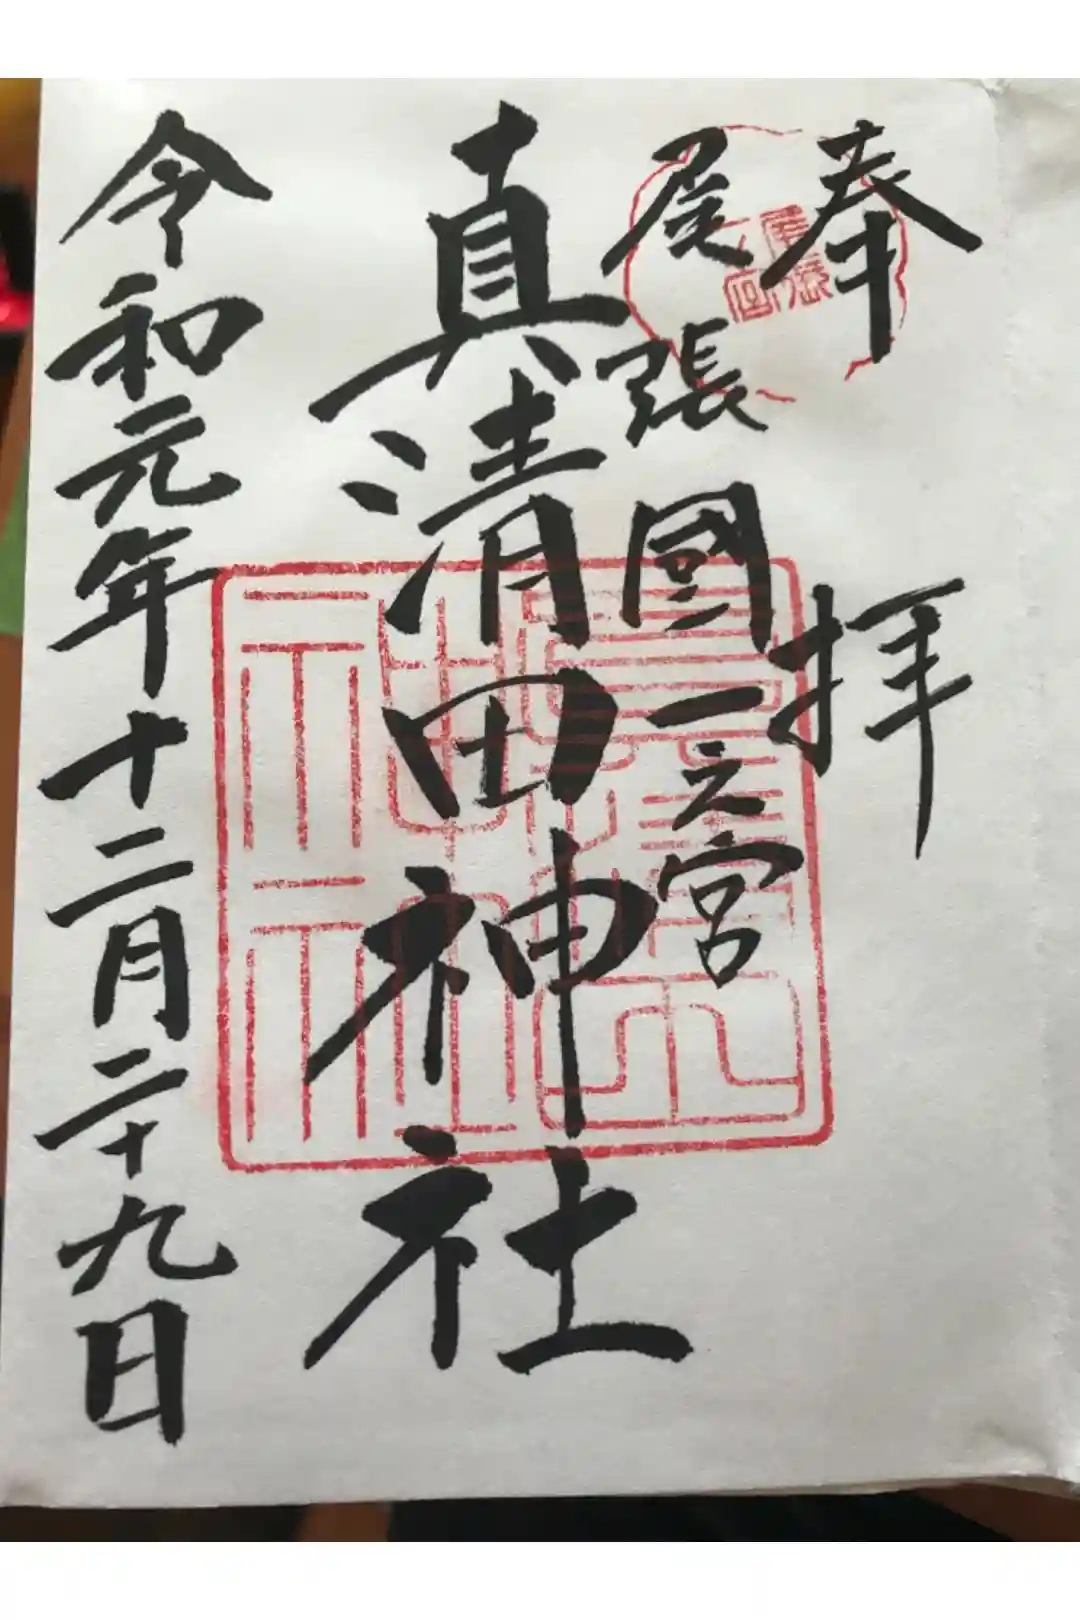 奉拝
尾張國一之宮
真清田神社
令和元年十二月二十九日
尾張
一宮